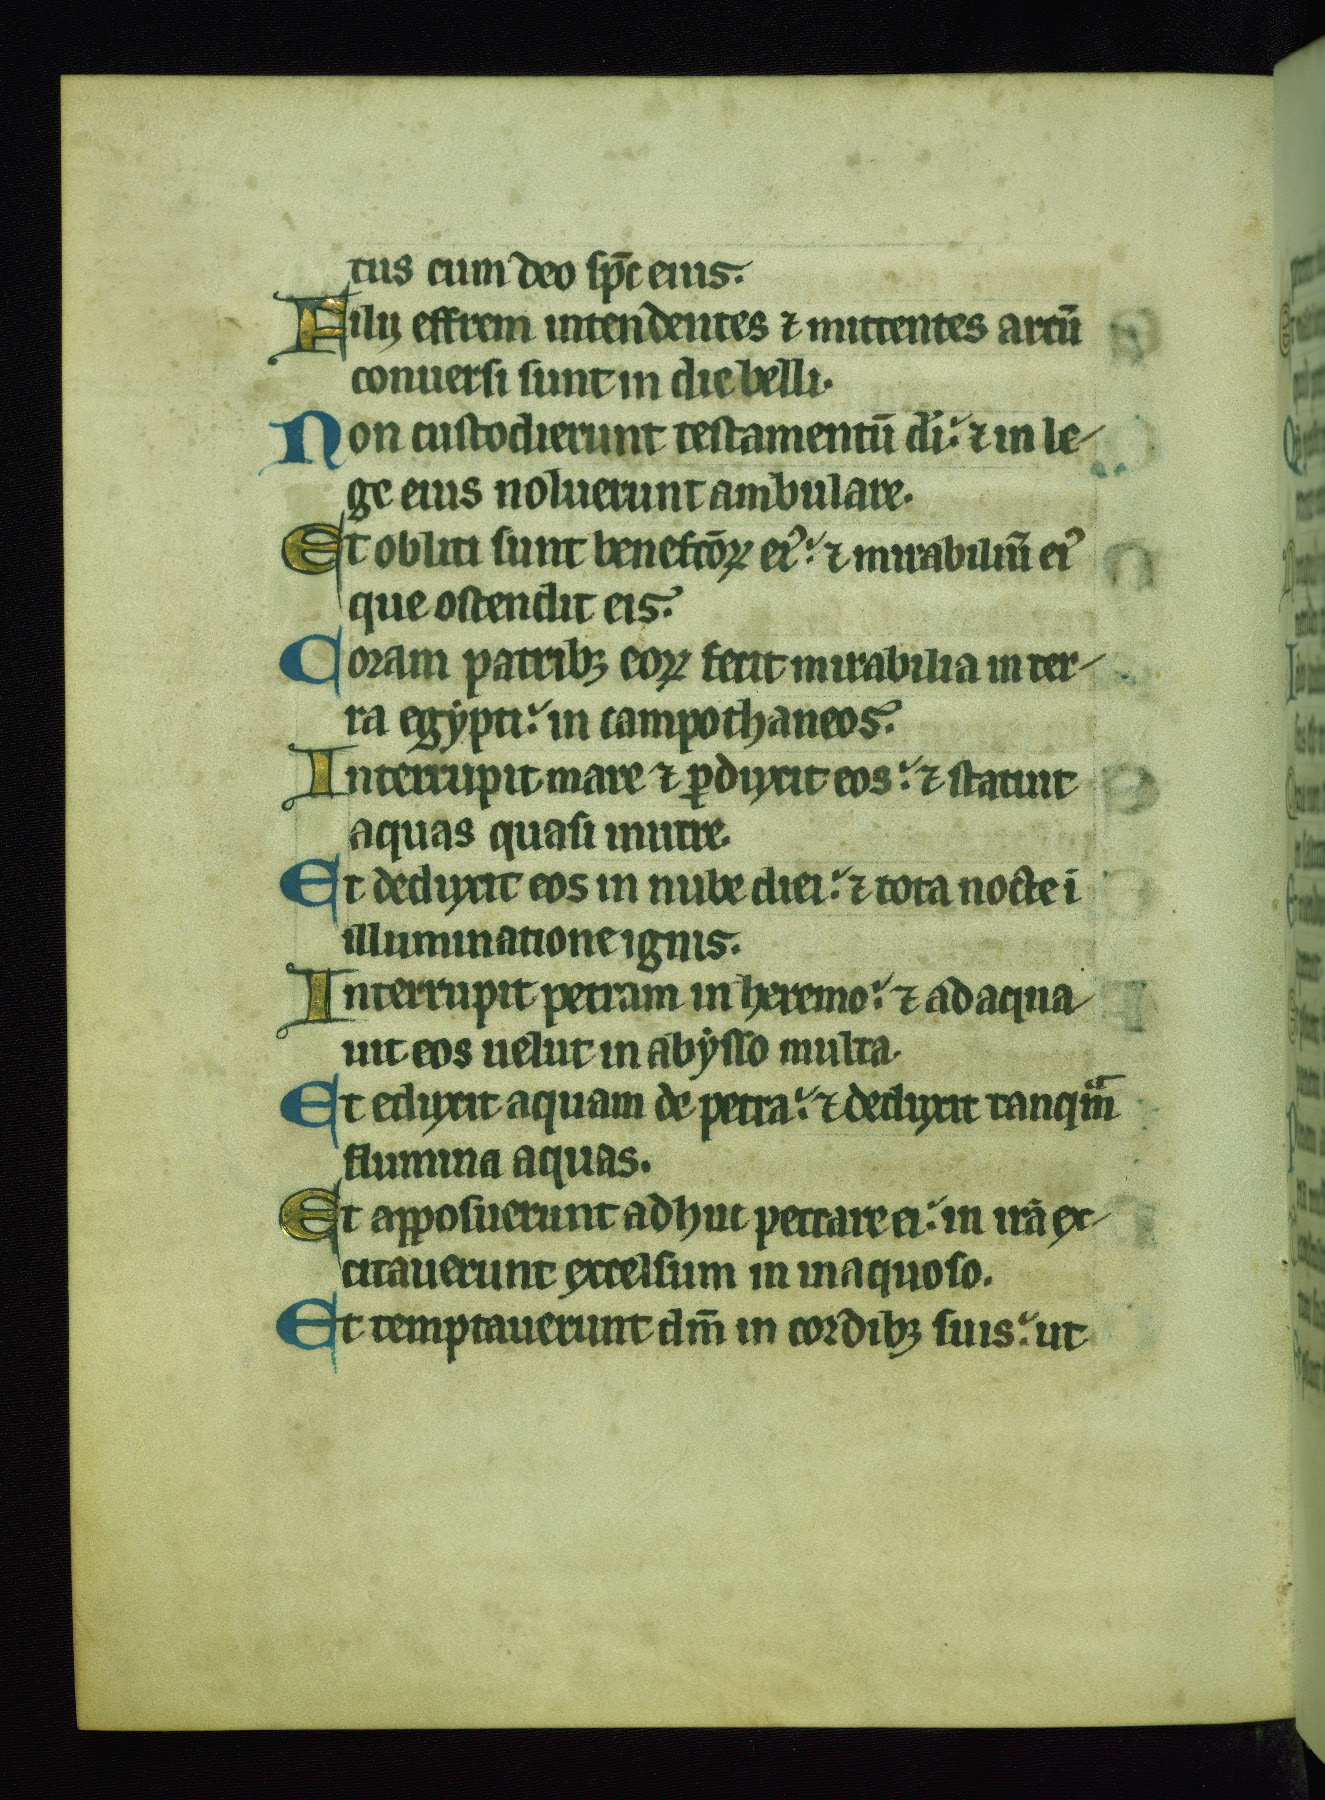 tus cum deo sp̄c eius.
Filij effrem intendentes ⁊ mittentes arcū
conuersi sunt in die belli.
Non custodierunt testamentū dī: ⁊ in le-
ge eius noluerunt ambulare.
Et obliti sunt benefcōꝝ ei᾽: ⁊ mirabiliū ei᾽
que ostendit eis.
Coram patribꝫ eoꝝ fecit mirabilia in ter-
ra egẏpti: in campo thaneos.
Interrupit mare ⁊ ꝑduxit eos: ⁊ statuit
aquas quasi in utre.
Et deduxit eos in nube diei: ⁊ tota nocte ī
illuminatione ignis.
Interrupit petram in heremo: ⁊ adaqua-
uit eos uelut in abẏsso multa.
Et eduxit aquam de petra: ⁊ deduxit tanqm̄
flumina aquas.
Et apposuerunt adhuc peccare ei: in irā ex-
citauerunt excelsum in inaquoso.
Et temptauerunt dm̄ in cordibꝫ suis: ut